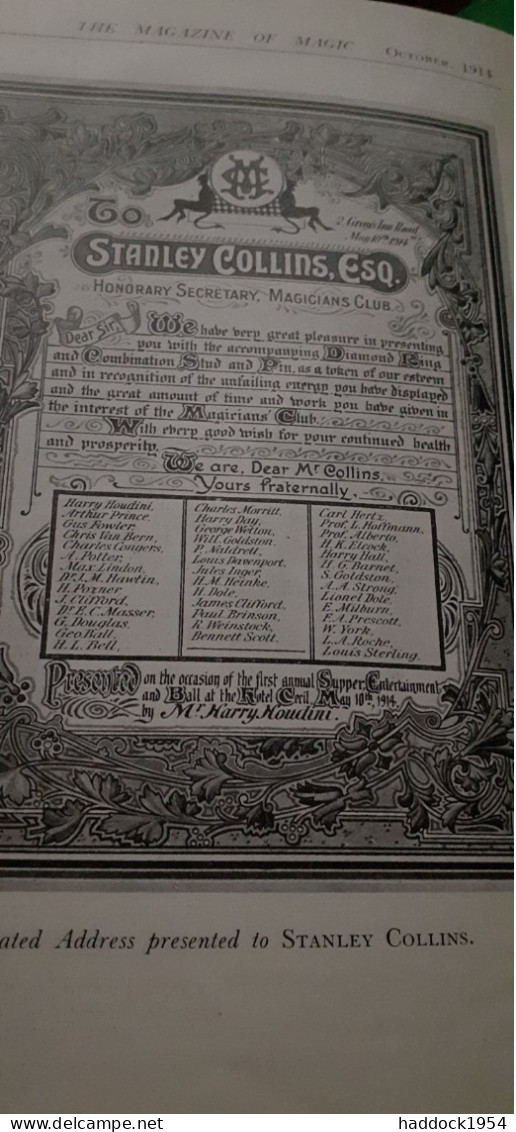 THE MAGAZINE OF MAGIC October, 1914
MC
To
2 Grays Inn Road
May 10th 1914
STANLEY COLLINS, ESQ.
HONORARY SECRETARY, MAGICIANS CLUB
Dear Sir, We have very great pleasure in presenting
you with the accompanying Diamond Ring
and Combination Stud and Pin, as a token of our esteem
and in recognition of the unfailing energy you have displayed
and the great amount of time and work you have given in
the interest of the Magicians' Club.
With every good wish for your continued health
and prosperity,
We are, Dear Mr Collins,
Yours fraternally,
Harry Houdini,
Arthur Prince,
Gus Fowler,
Chris Van Bern,
Charles Conyers,
A. Potter,
Max Lindon,
Dr. J. M. Hawtin,
H. Pozner,
J. Clifford,
Dr. E. C. Masser,
G. Douglas,
Geo. Ball,
H. L. Bell,
Charles Morritt,
Harry Day,
George Wetton,
Will Goldston,
P. Naldrett,
Louis Davenport,
Jules Jager,
H. M. Heinke,
H. Dole,
James Clifford,
Paul Brinson,
R. Weinstock,
Bennett Scott.
Carl Hertz,
Prof. L. Hoffmann,
Prof. Alberto,
H. K. Elcock,
Harry Hall,
H. G. Barnet,
S. Goldston,
A. A. Strong,
Lionel Dole,
E. Milburn,
F. A. Prescott,
W. York,
L. A. Roche,
Louis Sterling.
Presented on the occasion of the first annual Supper, Entertainment
and Ball at the Hotel Cecil, May 10th, 1914,
by Mr. Harry Houdini.
ated Address presented to STANLEY COLLINS.
haddock1954